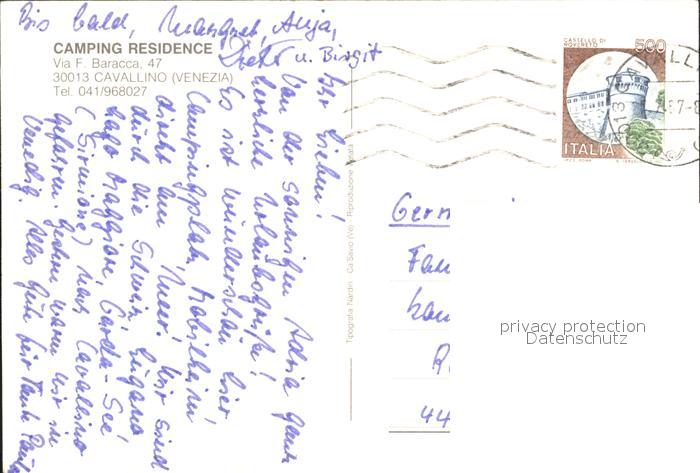 Bis bald, Margret, Anja,
Dieter u. Birgit
CAMPING RESIDENCE
Via F. Baracca, 47
30013 CAVALLINO (VENEZIA)
Tel. 041/968027
Ihr Lieben!
Von der sonnigen Adria ganz
herrliche Urlaubsgrüße!
Es ist wunderschön hier
Campingplatz, Mobilheim
direkt am Meer! Wir sind
durch die Schweiz Lugano
Lago Maggiore, Garda-See
(Sirmione) nach Cavallino
gefahren. Gestern waren wir in
Venedig. Alles Gute für
Tipografia Nardin - Ca'Savio (Ve) - Riproduzione
CASTELLO DI
ROVERETO
500
ITALIA
Germ
Fam
44
privacy protection
Datenschutz